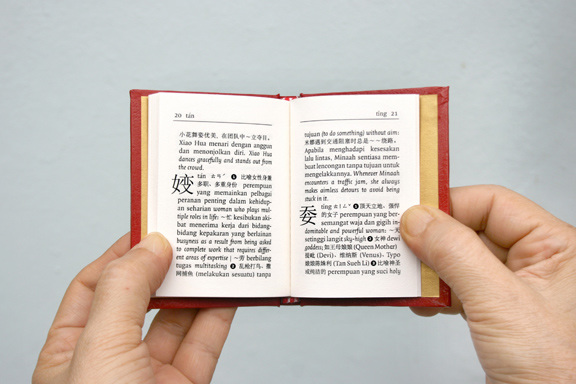 20 tán
小花舞姿优美, 在团队中～立夺目。
Xiao Hua menari dengan anggun
dan menonjolkan diri. Xiao Hua
dances gracefully and stands out from
the crowd.
tán ㄊㄢˊ ❶ 比喻女性身兼
多职、多重身份 perempuan
yang memainkan pelbagai
peranan penting dalam kehidup-
an seharian woman who plays mul-
tiple roles in life: ～忙 kesibukan aki-
bat menerima kerja dari bidang-
bidang kepakaran yang berlainan
busyness as a result from being asked
to complete work that requires differ-
ent areas of expertise | ～劳 berbilang
tugas multitasking ❷ 乱枪打鸟、重
网捕鱼 (melakukan sesuatu) tanpa
tǐng 21
tujuan (to do something) without aim:
米娜遇到交通阻塞时总是～～绕路。
Apabila menghadapi kesesakan
lalu lintas, Minaah sentiasa mem-
buat lencongan tanpa tujuan untuk
mengelakkannya. Whenever Minaah
encounters a traffic jam, she always
makes aimless detours to avoid being
stuck in it.
tǐng ㄊㄧㄥˇ ❶ 顶天立地、强悍
的女子 perempuan yang ber-
semangat waja dan gigih in-
domitable and powerful woman: ～天
setinggi langit sky-high ❷ 女神 dewi
goddess: 如王母娘娘 (Queen Mother)
曼毗 (Devi)、维纳斯 (Venus)、Typo
娘娘陈姝利 (Tan Sueh Li) ❸ 比喻神圣
或纯洁的 perempuan yang suci holy